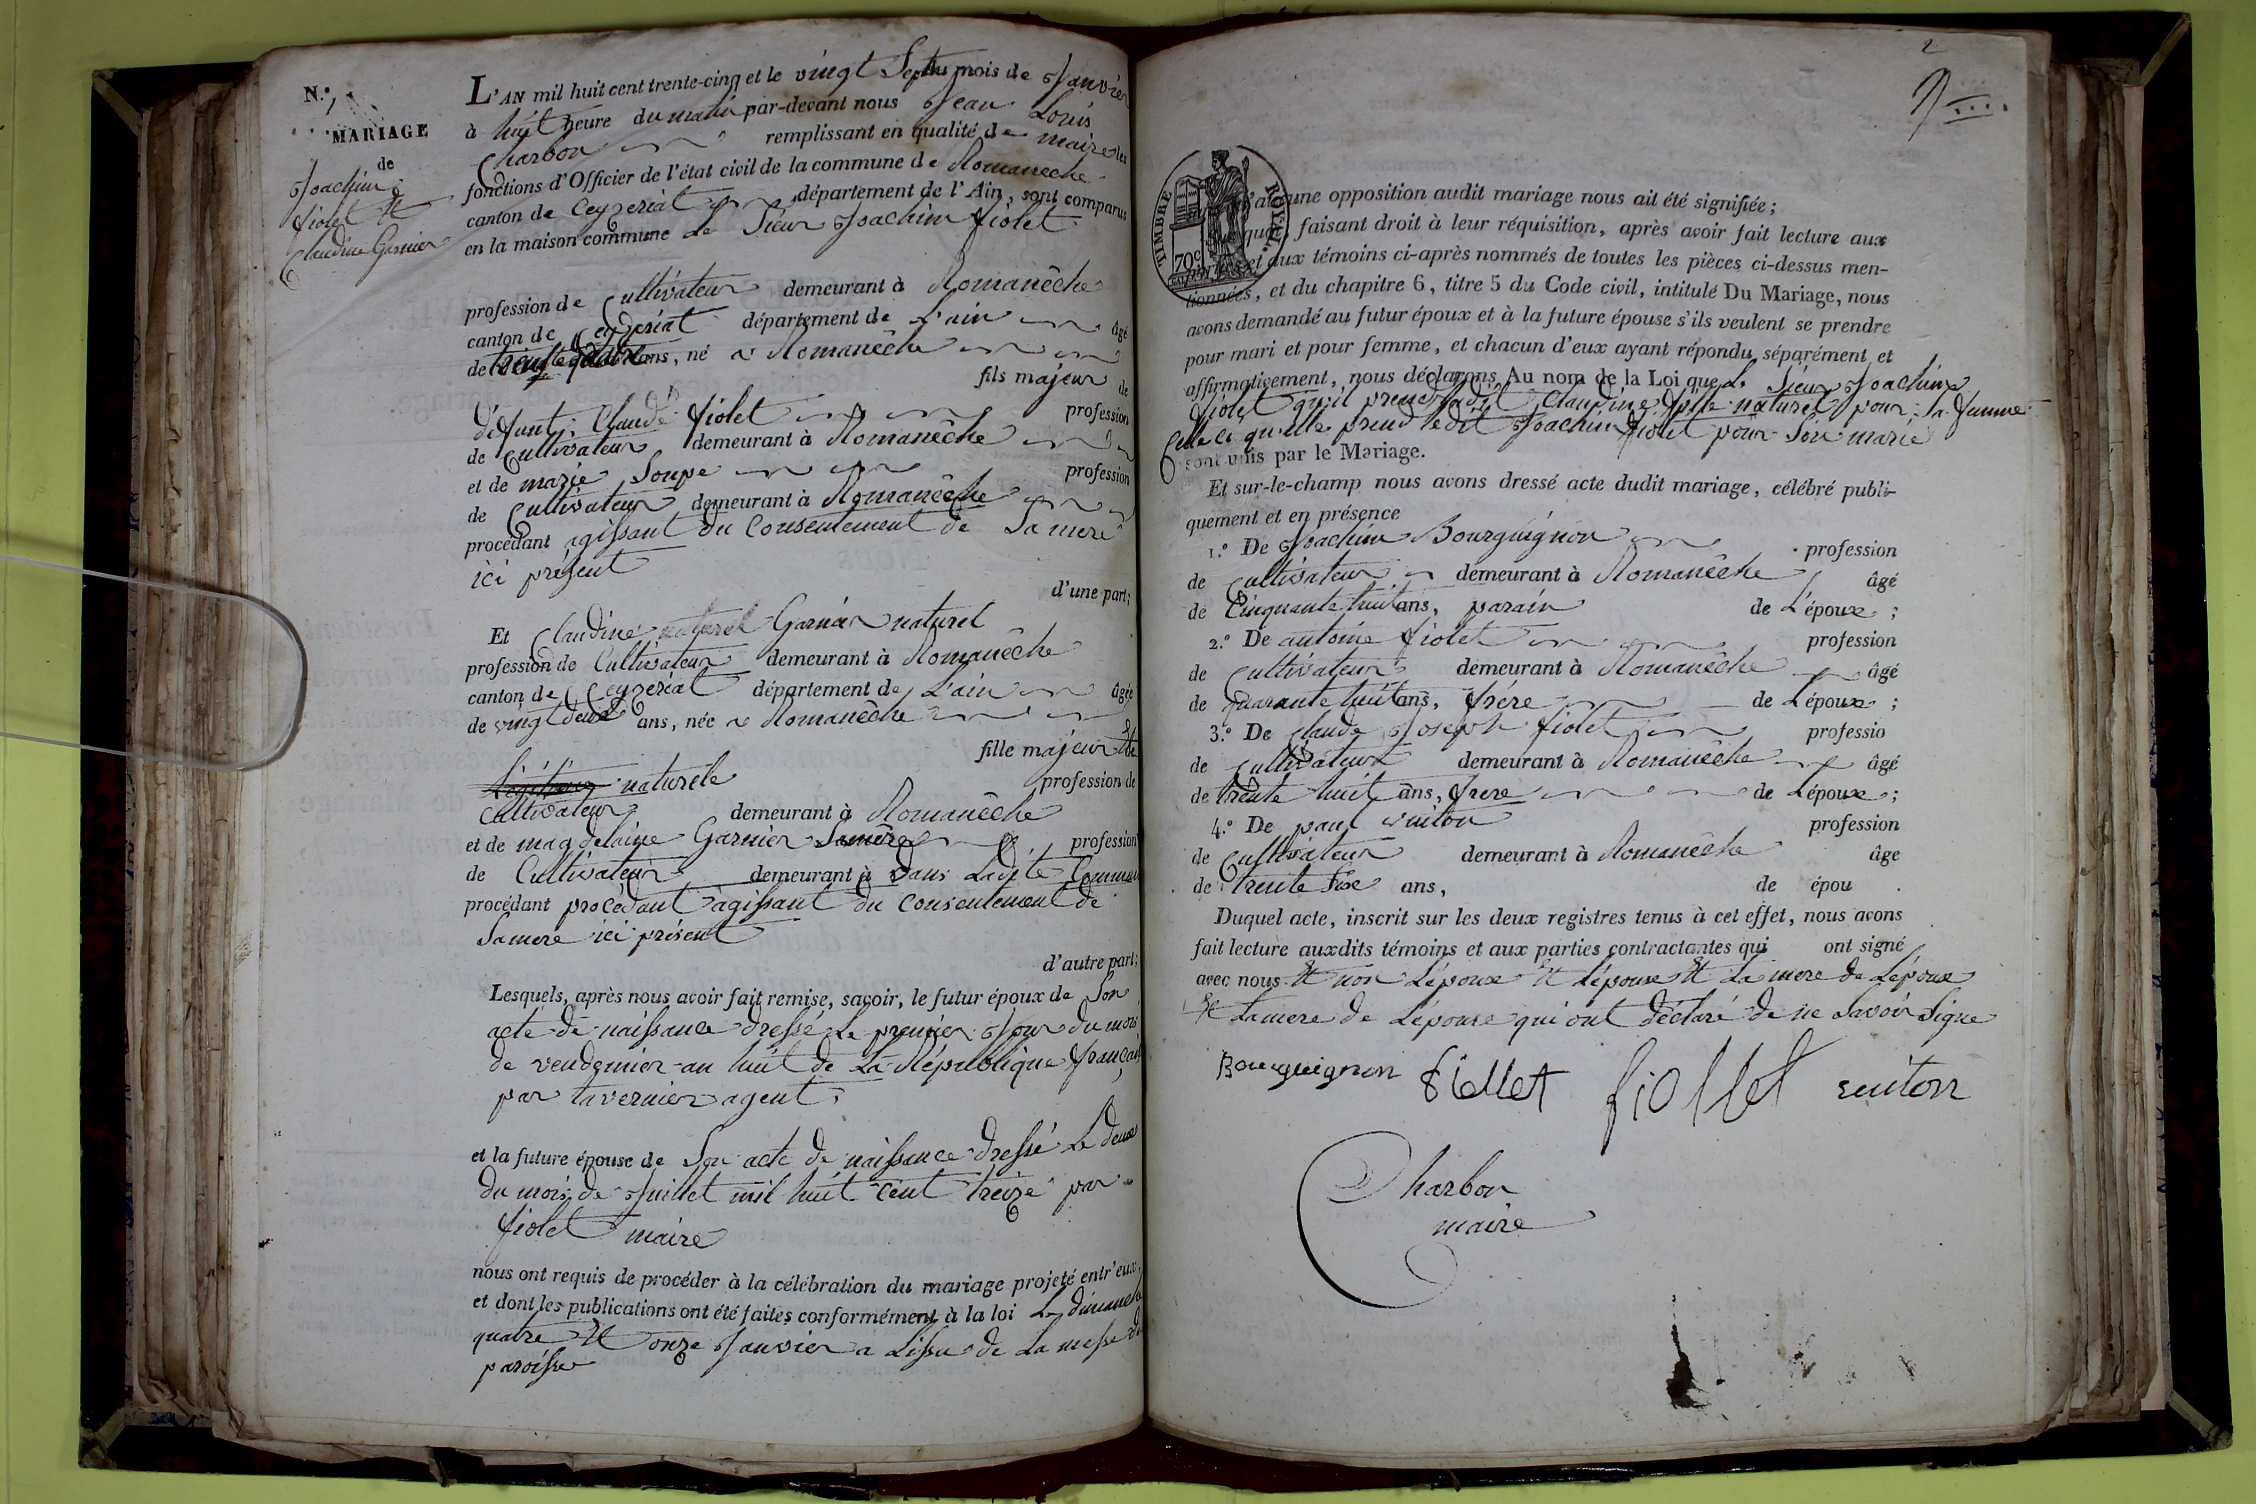 N.º 1
MARIAGE
de
Joachim
fiolet et
Claudine Garnier
L'AN mil huit cent trente-cinq et le vingt Sept du mois de Janvier
à huit heure du matin par-devant nous Jean Louis
Charbon remplissant en qualité de maire les
fonctions d'Officier de l'état civil de la commune de Romanêche
canton de Ceyzeriat département de l'Ain, sont comparus
en la maison commune Le Sieur Joachim fiolet
profession de Cultivateur demeurant à Romanêche
canton de Ceyzeriat département de L'ain âgé
de trente quatre ans, né a Romanêche
fils majeur de
défunt Claude fiolet profession
de Cultivateur demeurant à Romanêche
et de marie Soupe profession
de Cultivateur demeurant à Romanêche
procédant agissant du Consentement de Sa mere
ici présent
d'une part;
Et Claudine naturel Garnier naturel
profession de Cultivateur demeurant à Romanêche
canton de Ceyzeriat département de L'ain âgée
de vingt deux ans, née a Romanêche
fille majeur de
Légitime naturele profession de
Cultivateur demeurant à Romanêche
et de magdelaine Garnier Samêre profession
de Cultivateur demeurant à dans Ladite Commune
procédant procédant agissant du Consentement de
Samere ici présent
d'autre part;
Lesquels, après nous avoir fait remise, savoir, le futur époux de Son
acte de naissance dressé Le premier Jour du mois
de vendemier an huit de La République français
par tavernier agent
et la future épouse de Son acte de naissance dressé Le deux
du mois de Juillet mil huit cent treize par
fiolet maire
nous ont requis de procéder à la célébration du mariage projeté entr'eux,
et dont les publications ont été faites conformément à la loi Le dimanche
quatre et onze Janvier a Lissu de La messe de
paroisse
2
TIMBRE ROYAL
70c
aucune opposition audit mariage nous ait été signifiée;
faisant droit à leur réquisition, après avoir fait lecture aux
parties et aux témoins ci-après nommés de toutes les pièces ci-dessus men-
tionnées, et du chapitre 6, titre 5 du Code civil, intitulé Du Mariage, nous
avons demandé au futur époux et à la future épouse s'ils veulent se prendre
pour mari et pour femme, et chacun d'eux ayant répondu séparément et
affirmativement, nous déclarons Au nom de la Loi que Le Sieur Joachim
fiolet qu'il prend ladit Claudine fille naturel pour Sa femme
Celle ci qu'elle prend ledit Joachim fiolet pour Son marie
sont unis par le Mariage.
Et sur-le-champ nous avons dressé acte dudit mariage, célébré publi-
quement et en présence
1.º De Joachim Bourguignon profession
de Cultivateur demeurant à Romanêche âgé
de Cinquante huit ans, parain de L'époux ;
2.º De antoine fiolet profession
de Cultivateur demeurant à Romanêche âgé
de quarante huit ans, frére de Lépoux ;
3.º De Claude Joseph fiolet professio
de Cultivateur demeurant à Romanêche âgé
de trente huit ans, frere de Lépoux ;
4.º De paul vuiton profession
de Cultivateur demeurant à Romanêche âge
de trente Six ans, de épou .
Duquel acte, inscrit sur les deux registres tenus à cet effet, nous avons
fait lecture auxdits témoins et aux parties contractantes qui ont signé
avec nous Et non Lépoux Et Lépouse Et La mere de Lépoux
Et Lamere de Lépouse qui ont déclaré de ne Savoir Signe
Bourguignon fiollet fiollet vuiton
Charbon
maire